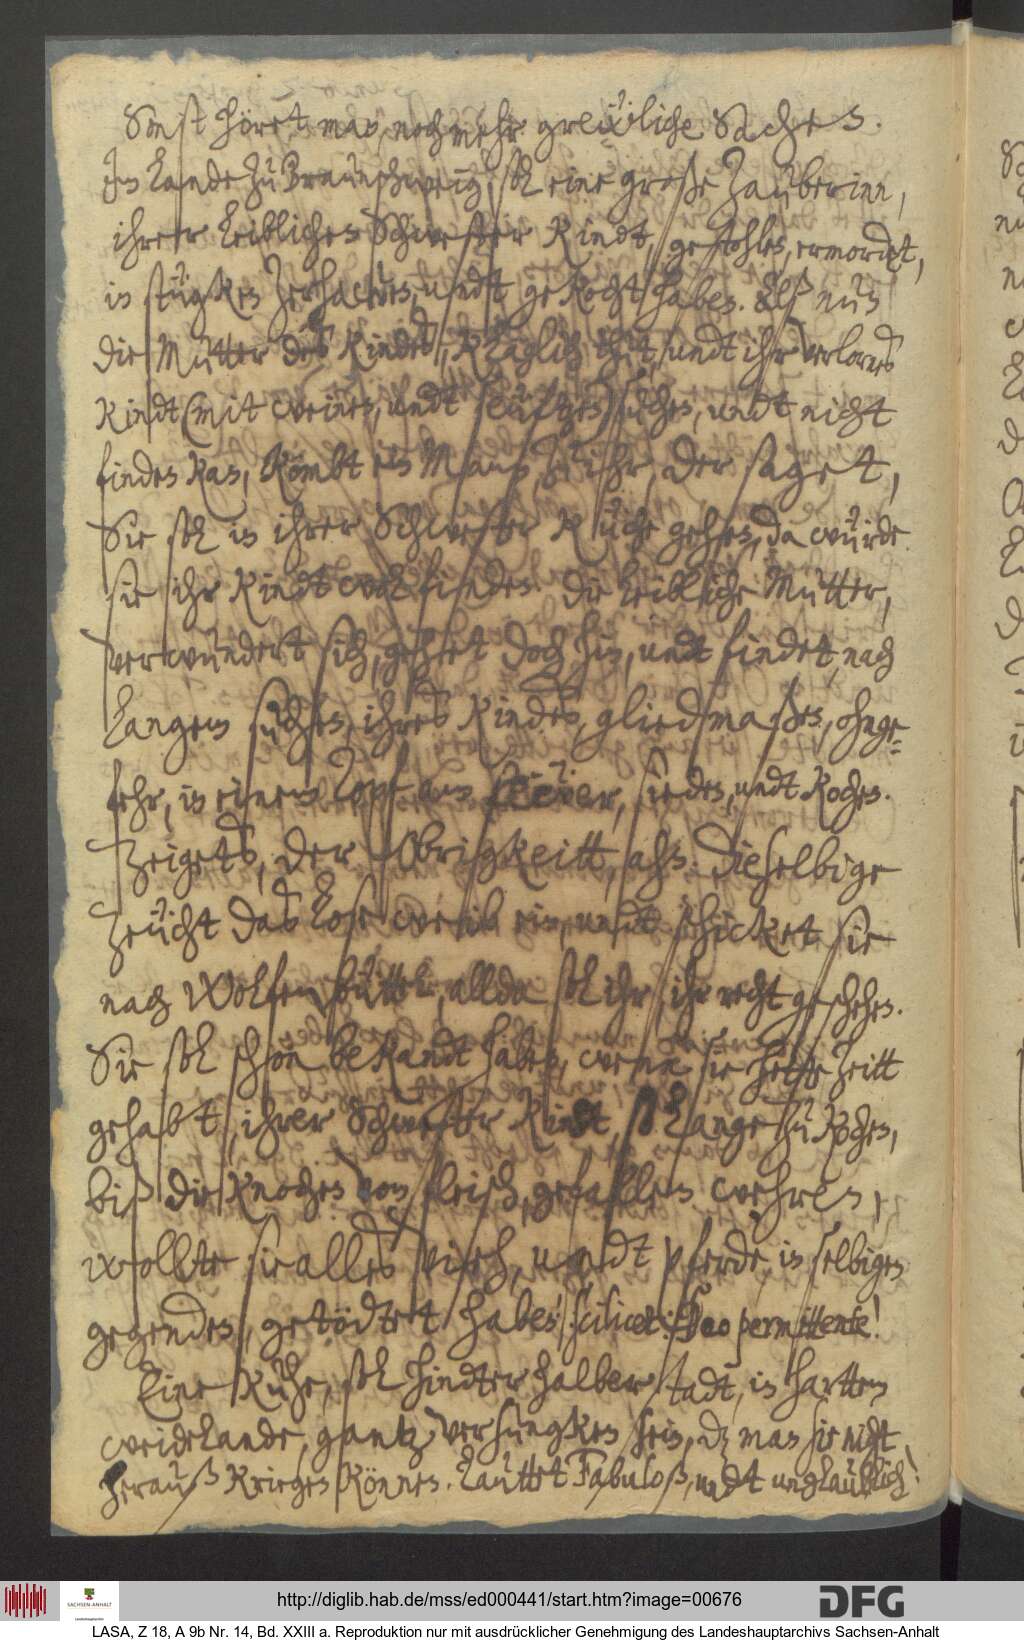 Sonst höret man, noch mehr greüliche Sachen.
Im Lande zu Braunschweig, soll eine große Zauberinn,
ihrer leiblichen Schwester Kindt, gestohlen, ermordet,
in stügken zerhacket, undt gekocht haben. Alß nun
die Mutter deß Kindes, kläglich thut, undt ihr verlornes
Kindt (mit weinen, undt seüftzen) suchen, undt nicht
finden kan, kömbt ein Mann zu ihr, der saget,
Sie soll in ihrer Schwester Küche gehen, da würde
sie ihr Kindt wol finden. die leibliche Mutter,
verwundert sich, gehet doch hin, undt findet, nach
langem suchen, ihres Kindes, gliedmaßen, ohnge-
fehr, in einem Topf am feüer, sieden, undt kochen.
Zeigets, der Obrigkeitt, ahn. Dieselbige
zeücht das lose weib ein, undt schicket sie
nach Wolfenbüttel, allda soll ihr, ihr recht geschehen.
Sie soll schon bekandt haben, wenn sie hette Zeitt
gehabt, ihrer Schwester Kindt, so lange zu kochen,
biß die knochen vom fleisch, gefallen wehren,
wollte sie alles Vieh, undt pferde, in selbigen
gegenden, getödtet haben, scilicet: Deo permittente!
Eine Kuhe, soll hindter Halberstadt, in hartem
weidelande, gantz versungken sein, dz man sie nicht
herauß kriegen können. Lauttet Fabuloß, undt unglaublich!
http://diglib.hab.de/mss/ed000441/start.htm?image=00676
DFG
SACHSEN-ANHALT
LASA, Z 18, A 9b Nr. 14, Bd. XXIII a. Reproduktion nur mit ausdrücklicher Genehmigung des Landeshauptarchivs Sachsen-Anhalt